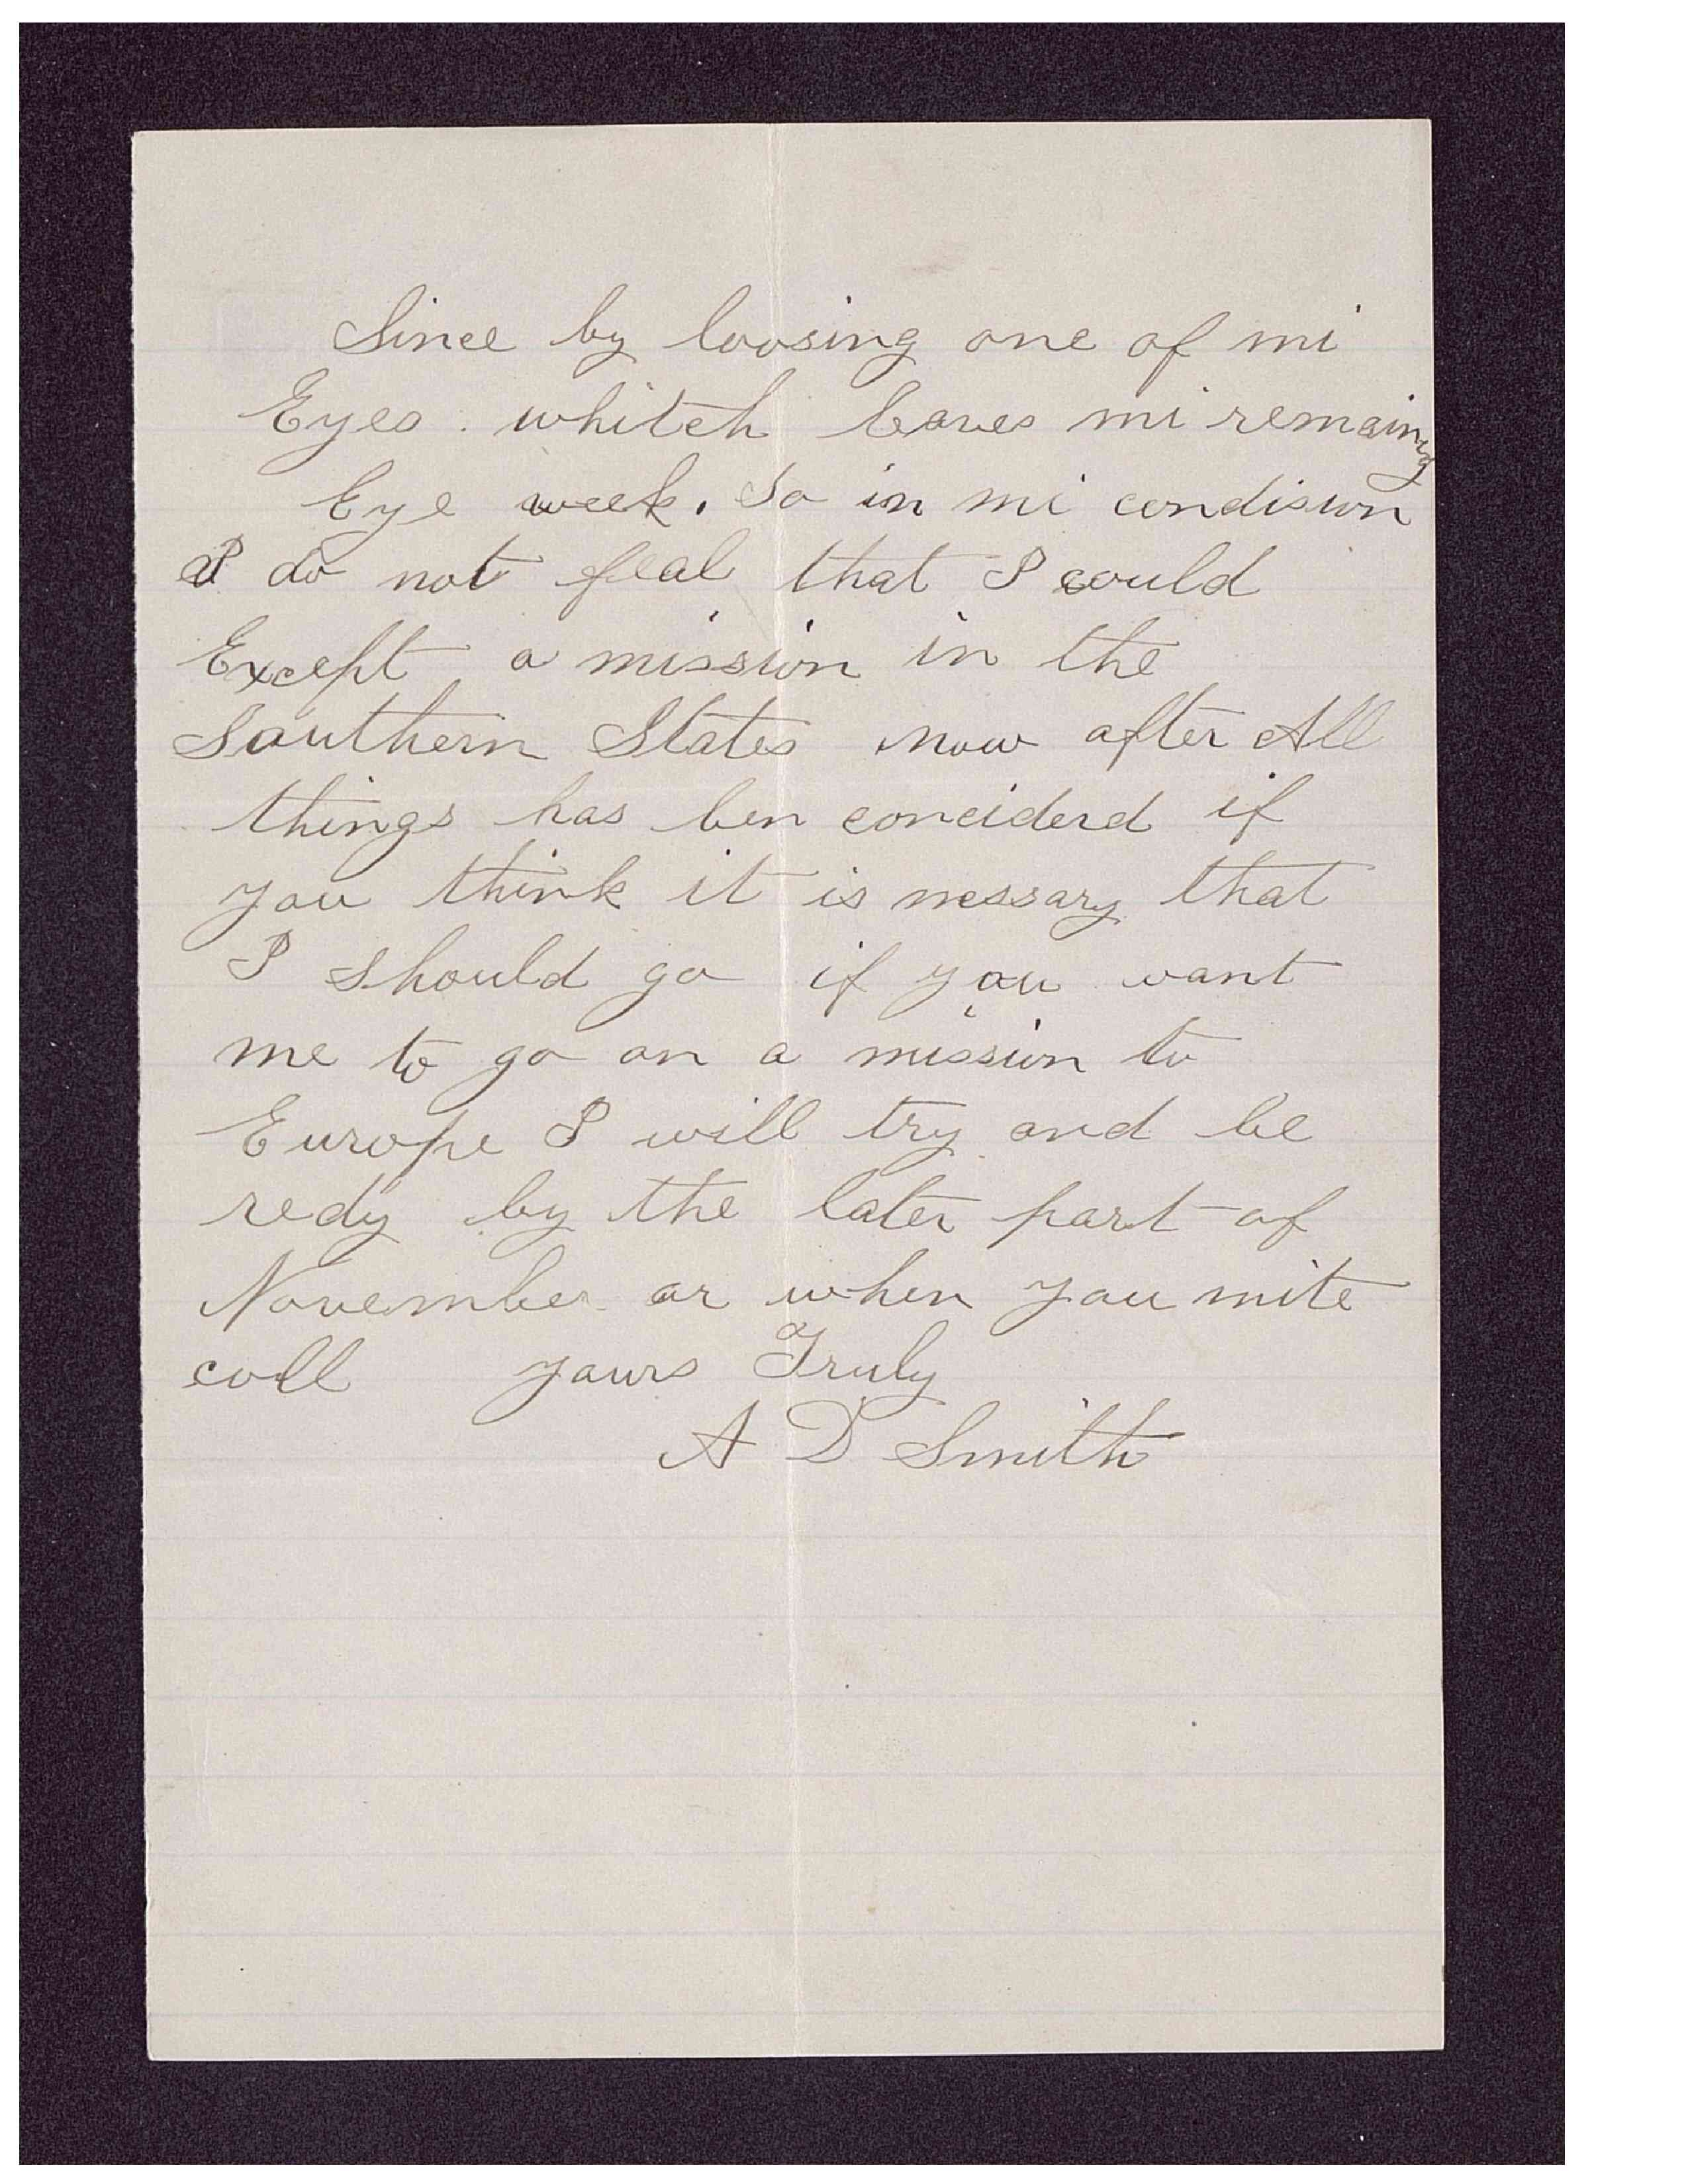 Since by loosing one of mi
Eyes. whitch leaves mi remaing
Eye week. So in mi condision
I do not feal that I could
Except a mission in the
Southern States now after All
things has ben conciderd if
you think it is nessary that
I should go if you want
me to go on a mission to
Europe I will try and be
redy by the later part of
November or when you mite
coll yours Truly
A D Smith